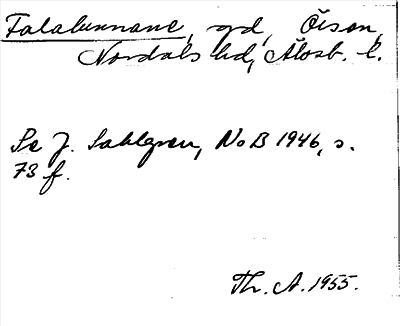 Falabunnane, gd, Ör sn,
Nordals hd, Älvsb. l.
Se J. Sahlgren, NoB 1946, s.
73 f.
Th. A. 1955.